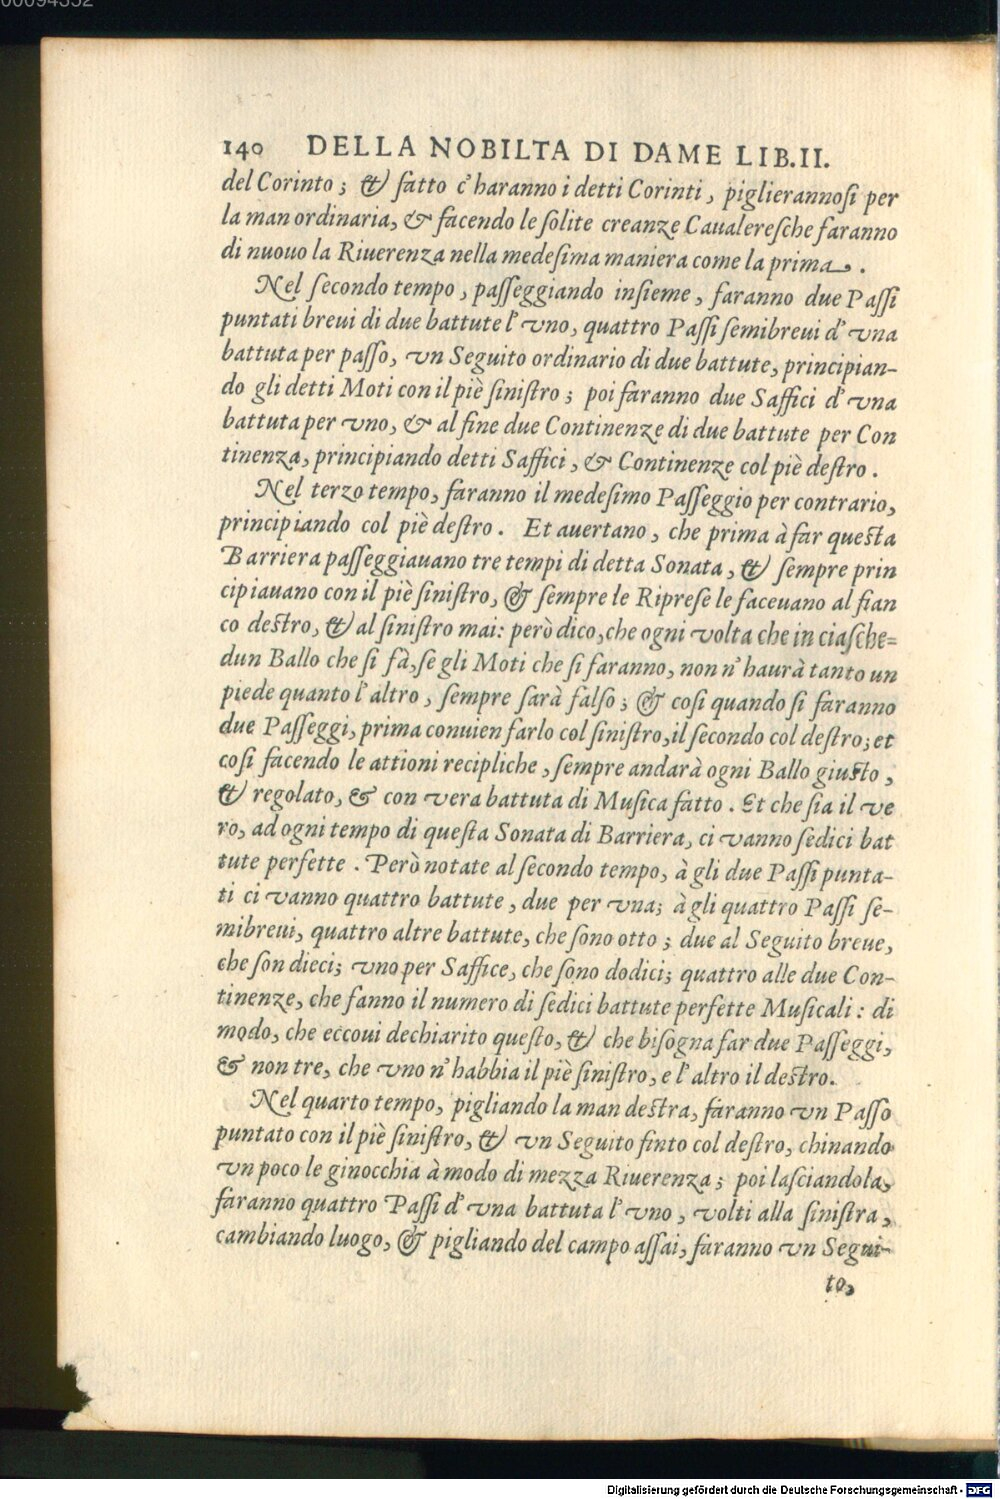 00094352
140 DELLA NOBILTA DI DAME LIB.II.
del Corinto; & fatto c'haranno i detti Corinti, piglierannoſi per
la man ordinaria, & facendo le ſolite creanze Caualereſche faranno
di nuouo la Riuerenza nella medeſima maniera come la prima.
Nel ſecondo tempo, paſſeggiando inſieme, faranno due Paſſi
puntati breui di due battute l'vno, quattro Paſſi ſemibreui d'vna
battuta per paſſo, vn Seguito ordinario di due battute, principian-
do gli detti Moti con il piè ſiniſtro; poi faranno due Saffici d'vna
battuta per vno, & al fine due Continenze di due battute per Con
tinenza, principiando detti Saffici, & Continenze col piè deſtro.
Nel terzo tempo, faranno il medeſimo Paſſeggio per contrario,
principiando col piè deſtro. Et auertano, che prima à far queſta
Barriera paſſeggiauano tre tempi di detta Sonata, & ſempre prin
cipiauano con il piè ſiniſtro, & ſempre le Ripreſe le faceuano al fian
co deſtro, & al ſiniſtro mai: però dico, che ogni volta che in ciaſche=
dun Ballo che ſi fà, ſe gli Moti che ſi faranno, non n'haurà tanto un
piede quanto l'altro, ſempre ſarà falſo; & coſi quando ſi faranno
due Paſſeggi, prima conuien farlo col ſiniſtro, il ſecondo col deſtro; et
coſi facendo le attioni recipliche, ſempre andarà ogni Ballo giuſto,
& regolato, & con vera battuta di Muſica fatto. Et che ſia il ve
ro, ad ogni tempo di queſta Sonata di Barriera, ci vanno ſedici bat
tute perfette. Però notate al ſecondo tempo, à gli due Paſſi punta-
ti ci vanno quattro battute, due per vna; à gli quattro Paſſi ſe-
mibreui, quattro altre battute, che ſono otto; due al Seguito breue,
che ſon dieci; vno per Saffice, che ſono dodici; quattro alle due Con-
tinenze, che fanno il numero di ſedici battute perfette Muſicali: di
modo, che eccoui dechiarito queſto, & che biſogna far due Paſſeggi,
& non tre, che vno n'habbia il piè ſiniſtro, e l'altro il deſtro.
Nel quarto tempo, pigliando la man deſtra, faranno vn Paſſo
puntato con il piè ſiniſtro, & vn Seguito finto col deſtro, chinando
vn poco le ginocchia à modo di mezza Riuerenza; poi laſciandola,
faranno quattro Paſſi d'vna battuta l'vno, volti alla ſiniſtra,
cambiando luogo, & pigliando del campo aſſai, faranno vn Segui-
to,
Digitalisierung gefördert durch die Deutsche Forschungsgemeinschaft - DFG